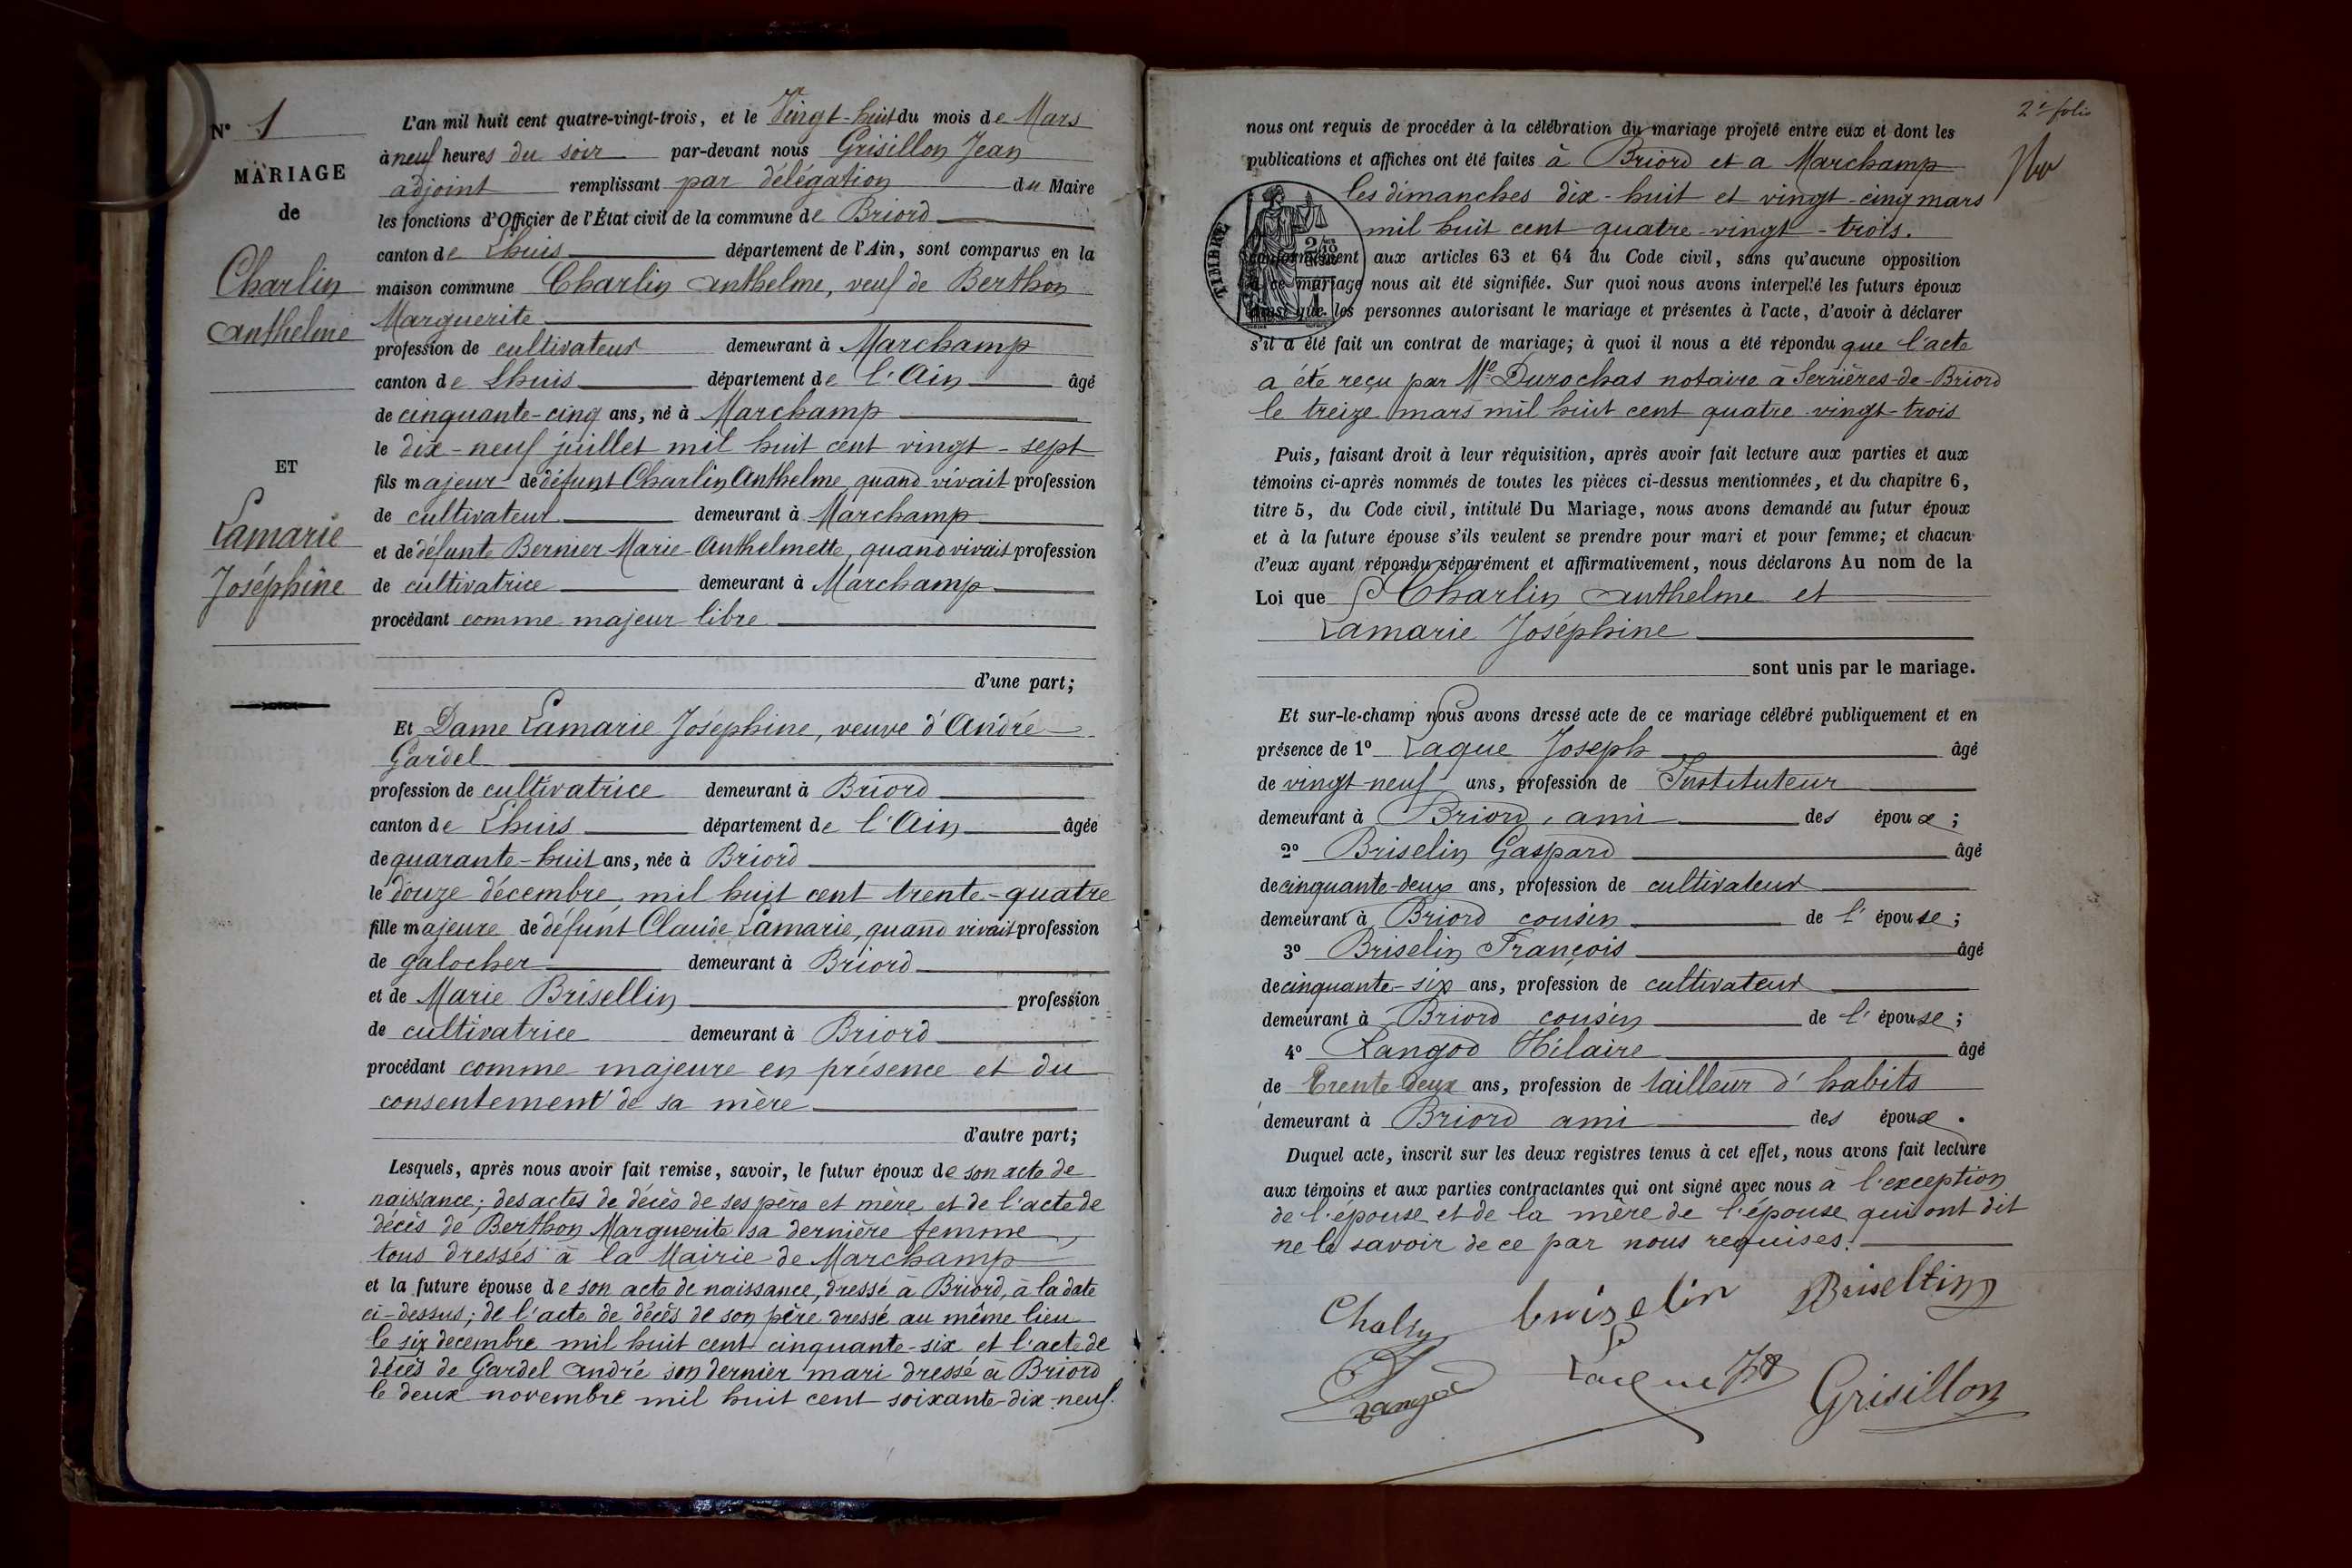 N° 1
MARIAGE
de
Charlin
Anthelme
ET
Lamarie
Joséphine
L'an mil huit cent quatre-vingt-trois, et le Vingt-huit du mois de Mars
à neuf heures du soir par-devant nous Grisillon Jean
adjoint remplissant par délégation du Maire
les fonctions d'Officier de l'État civil de la commune de Briord
canton de Lhuis département de l'Ain, sont comparus en la
maison commune Charlin Anthelme, veuf de Berthon
Marguerite
profession de cultivateur demeurant à Marchamp
canton de Lhuis département de l'Ain âgé
de cinquante-cinq ans, né à Marchamp
le dix-neuf juillet mil huit cent vingt-sept
fils majeur de défunt Charlin Anthelme, quand vivait profession
de cultivateur demeurant à Marchamp
et de défunte Bernier Marie-Anthelmette, quand vivait profession
de cultivatrice demeurant à Marchamp
procédant comme majeur libre
d'une part;
Et Dame Lamarie Joséphine, veuve d'André
Gardel
profession de cultivatrice demeurant à Briord
canton de Lhuis département de l'Ain âgée
de quarante-huit ans, née à Briord
le douze décembre mil huit cent trente-quatre
fille majeure de défunt Claude Lamarie, quand vivait profession
de galocher demeurant à Briord
et de Marie Brisellin profession
de cultivatrice demeurant à Briord
procédant comme majeure en présence et du
consentement de sa mère
d'autre part;
Lesquels, après nous avoir fait remise, savoir, le futur époux de son acte de
naissance; des actes de décès de ses père et mère et de l'acte de
décès de Berthon Marguerite sa dernière femme,
tous dressés à la Mairie de Marchamp
et la future épouse de son acte de naissance, dressé à Briord, à la date
ci-dessus; de l'acte de décès de son père dressé au même lieu
le six decembre mil huit cent cinquante-six et l'acte de
décès de Gardel André son dernier mari dressé à Briord
le deux novembre mil huit cent soixante-dix-neuf.
2e folio
nous ont requis de procéder à la célébration du mariage projeté entre eux et dont les
publications et affiches ont été faites à Briord et a Marchamp
les dimanches dix-huit et vingt-cinq mars
mil huit cent quatre-vingt-trois.
TIMBRE
conformément aux articles 63 et 64 du Code civil, sans qu'aucune opposition
à ce mariage nous ait été signifiée. Sur quoi nous avons interpellé les futurs époux
ainsi que les personnes autorisant le mariage et présentes à l'acte, d'avoir à déclarer
s'il a été fait un contrat de mariage; à quoi il nous a été répondu que l'acte
a été reçu par Me Durochas notaire à Serrières-de-Briord
le treize mars mil huit cent quatre vingt-trois
Puis, faisant droit à leur réquisition, après avoir fait lecture aux parties et aux
témoins ci-après nommés de toutes les pièces ci-dessus mentionnées, et du chapitre 6,
titre 5, du Code civil, intitulé Du Mariage, nous avons demandé au futur époux
et à la future épouse s'ils veulent se prendre pour mari et pour femme; et chacun
d'eux ayant répondu séparément et affirmativement, nous déclarons Au nom de la
Loi que Charlin Anthelme et
Lamarie Joséphine
sont unis par le mariage.
Et sur-le-champ nous avons dressé acte de ce mariage célébré publiquement et en
présence de 1° Laque Joseph âgé
de vingt-neuf ans, profession de Instituteur
demeurant à Briord, ami des époux;
2° Briselin Gaspard âgé
de cinquante-deux ans, profession de cultivateur
demeurant à Briord cousin de l'épouse;
3° Briselin François âgé
de cinquante-six ans, profession de cultivateur
demeurant à Briord cousin de l'épouse;
4° Rangod Hilaire âgé
de trente deux ans, profession de tailleur d'habits
demeurant à Briord ami des époux.
Duquel acte, inscrit sur les deux registres tenus à cet effet, nous avons fait lecture
aux témoins et aux parties contractantes qui ont signé avec nous à l'exception
de l'épouse et de la mère de l'épouse qui ont dit
ne le savoir de ce par nous requises.
briselin Brisellin
Rangod Laque Grisillon